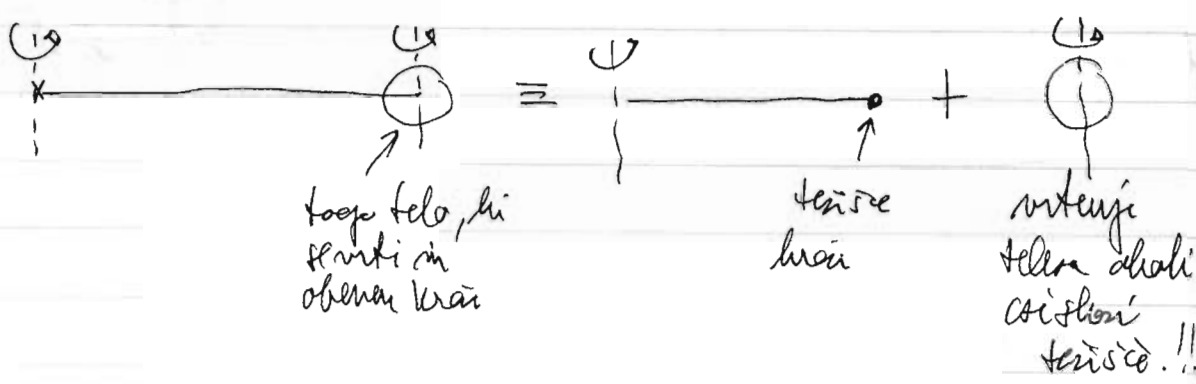 ≡ +
togo telo, ki
se vrti in
obenem kroži
težišče
kroži
vrtenje
telesa okoli
osi skozi
težišče.!!